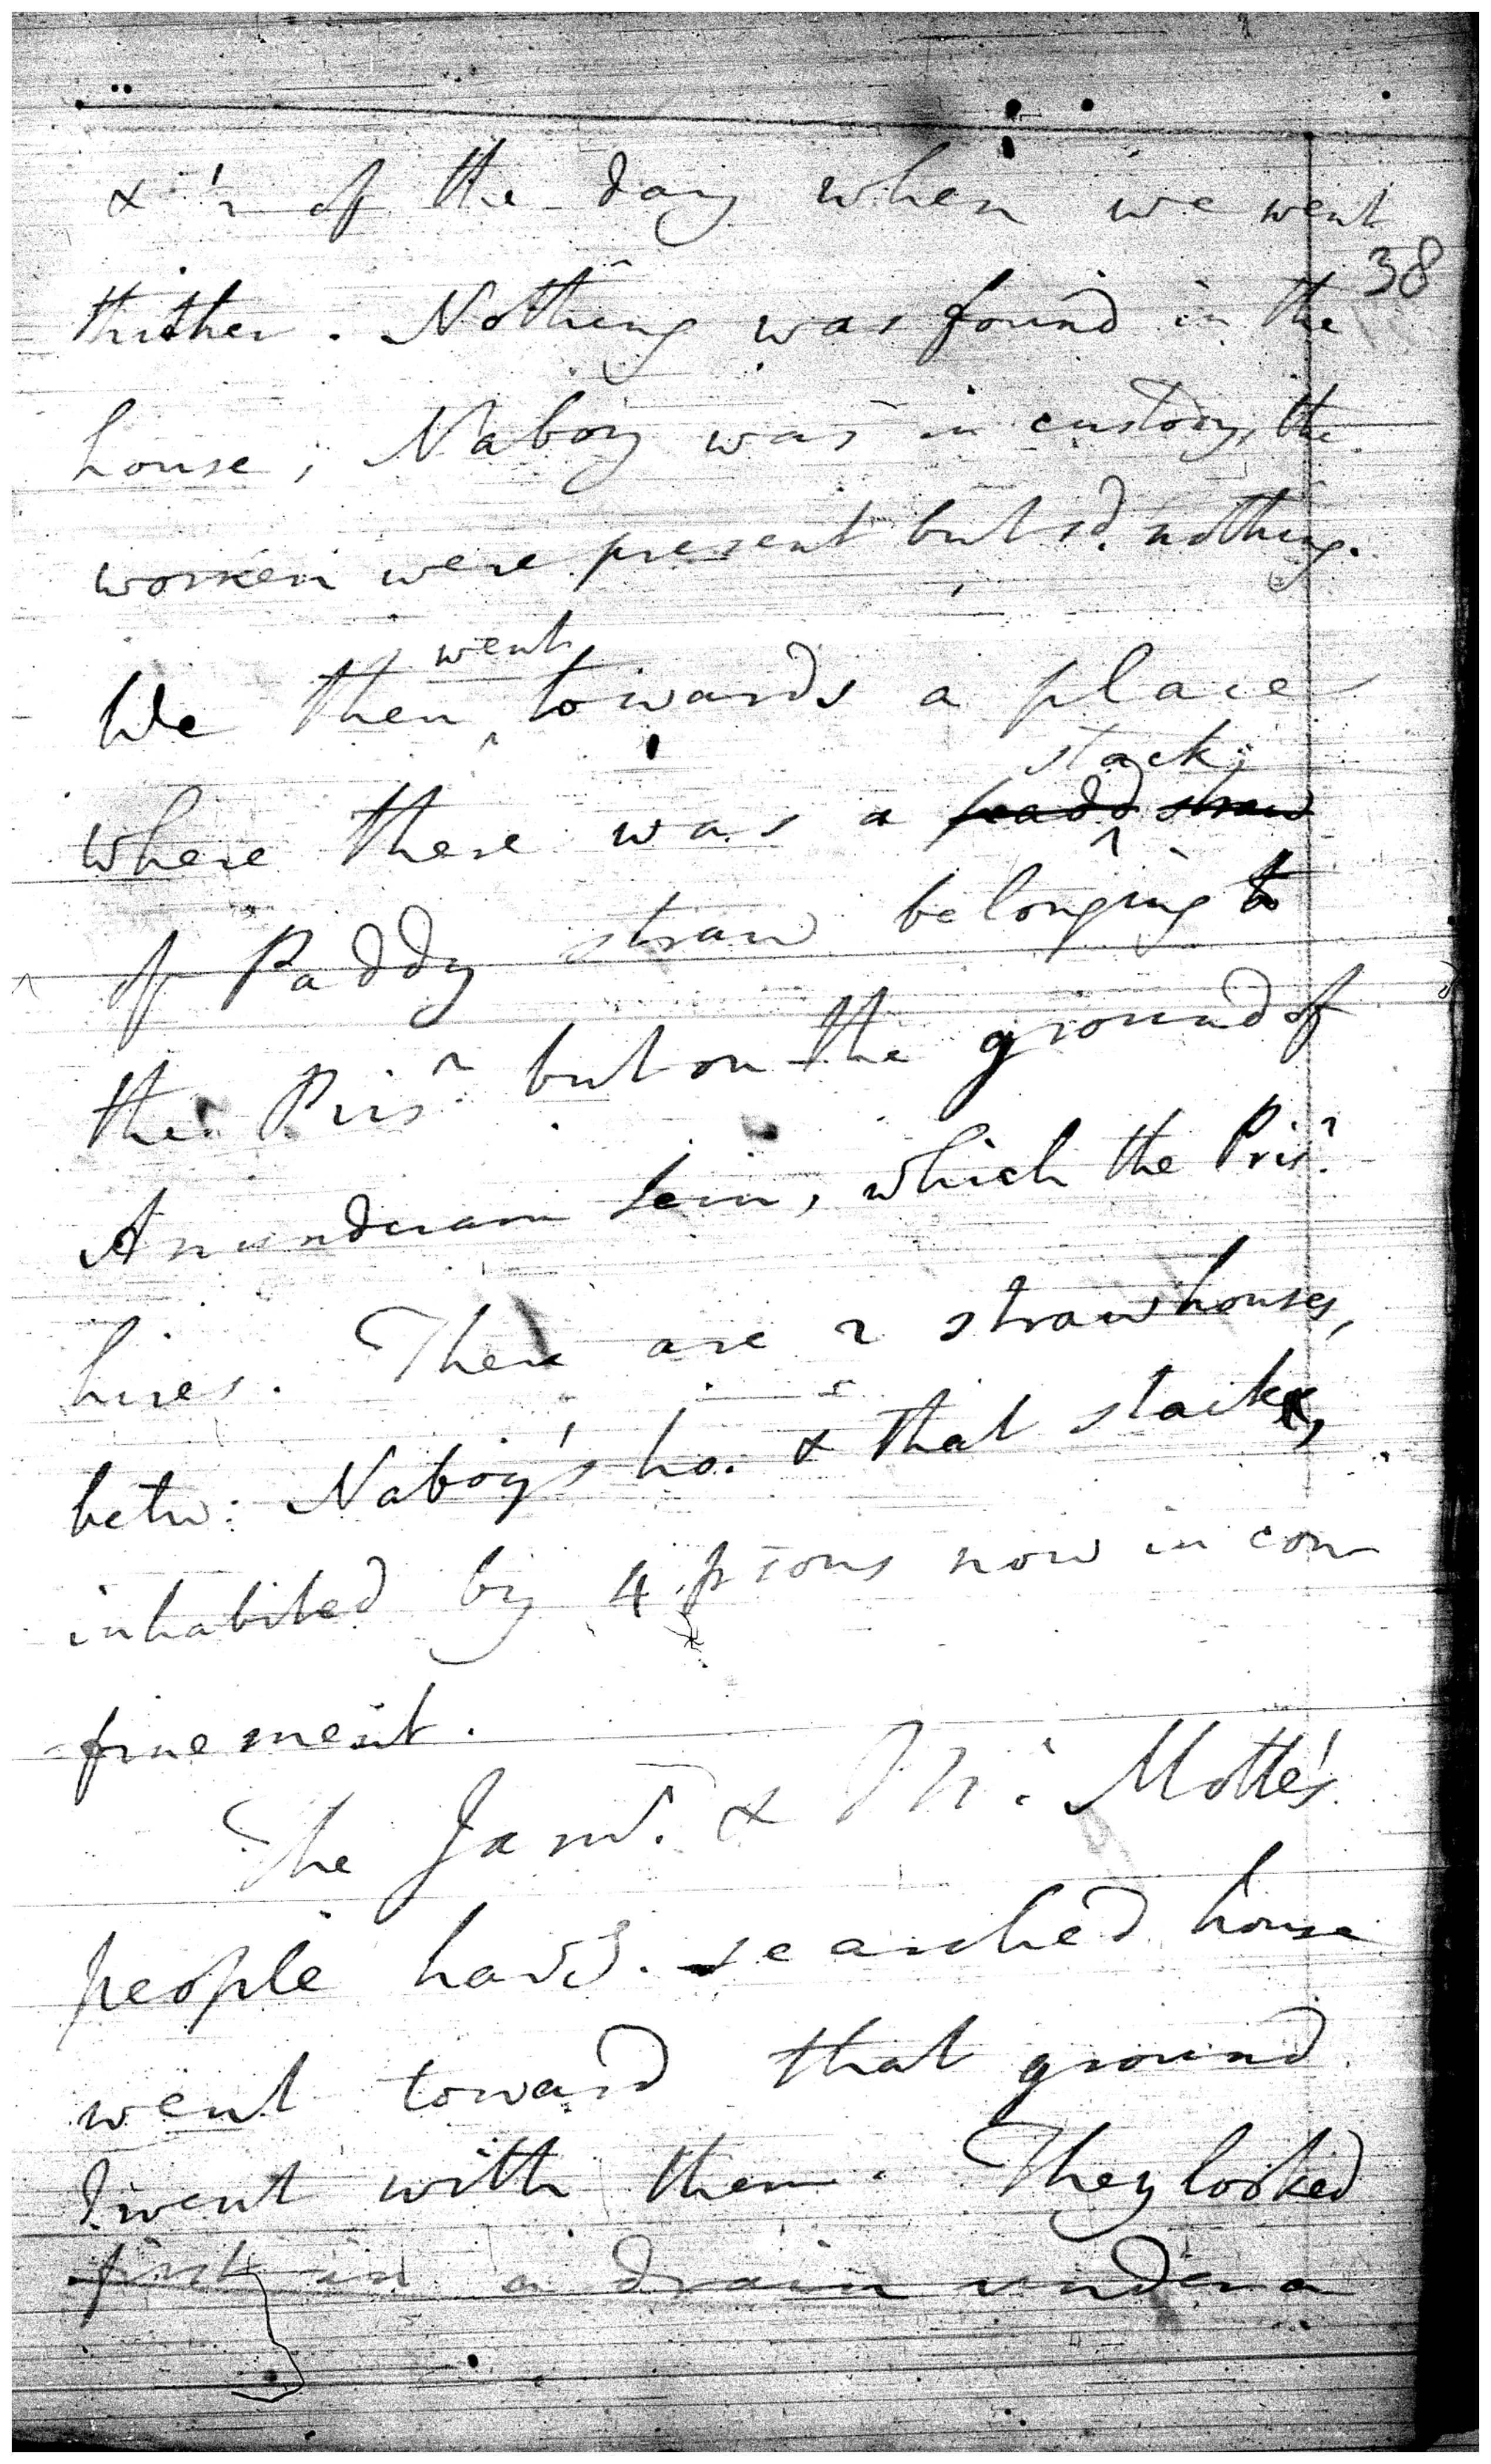 & '2 of the day when we went
38
thither. Nothing was found in the
house; Naboy was in custody, the
women were present but sd. nothing.
went
We then ^ towards a place
stack
where there was a padd straw
of Paddy straw belonging to
the Prisr. but on the ground of
Anunduram Sein, which the Prisr.
hires. There are 2 strawhouses,
betw: Naboy's ho. & that stack,
inhabited by 4 psons now in con-
finement.
The Jamr. & Mr. Motte's
people havg. searched house
went toward that ground.
I went with them. They looked
first in a drain under a